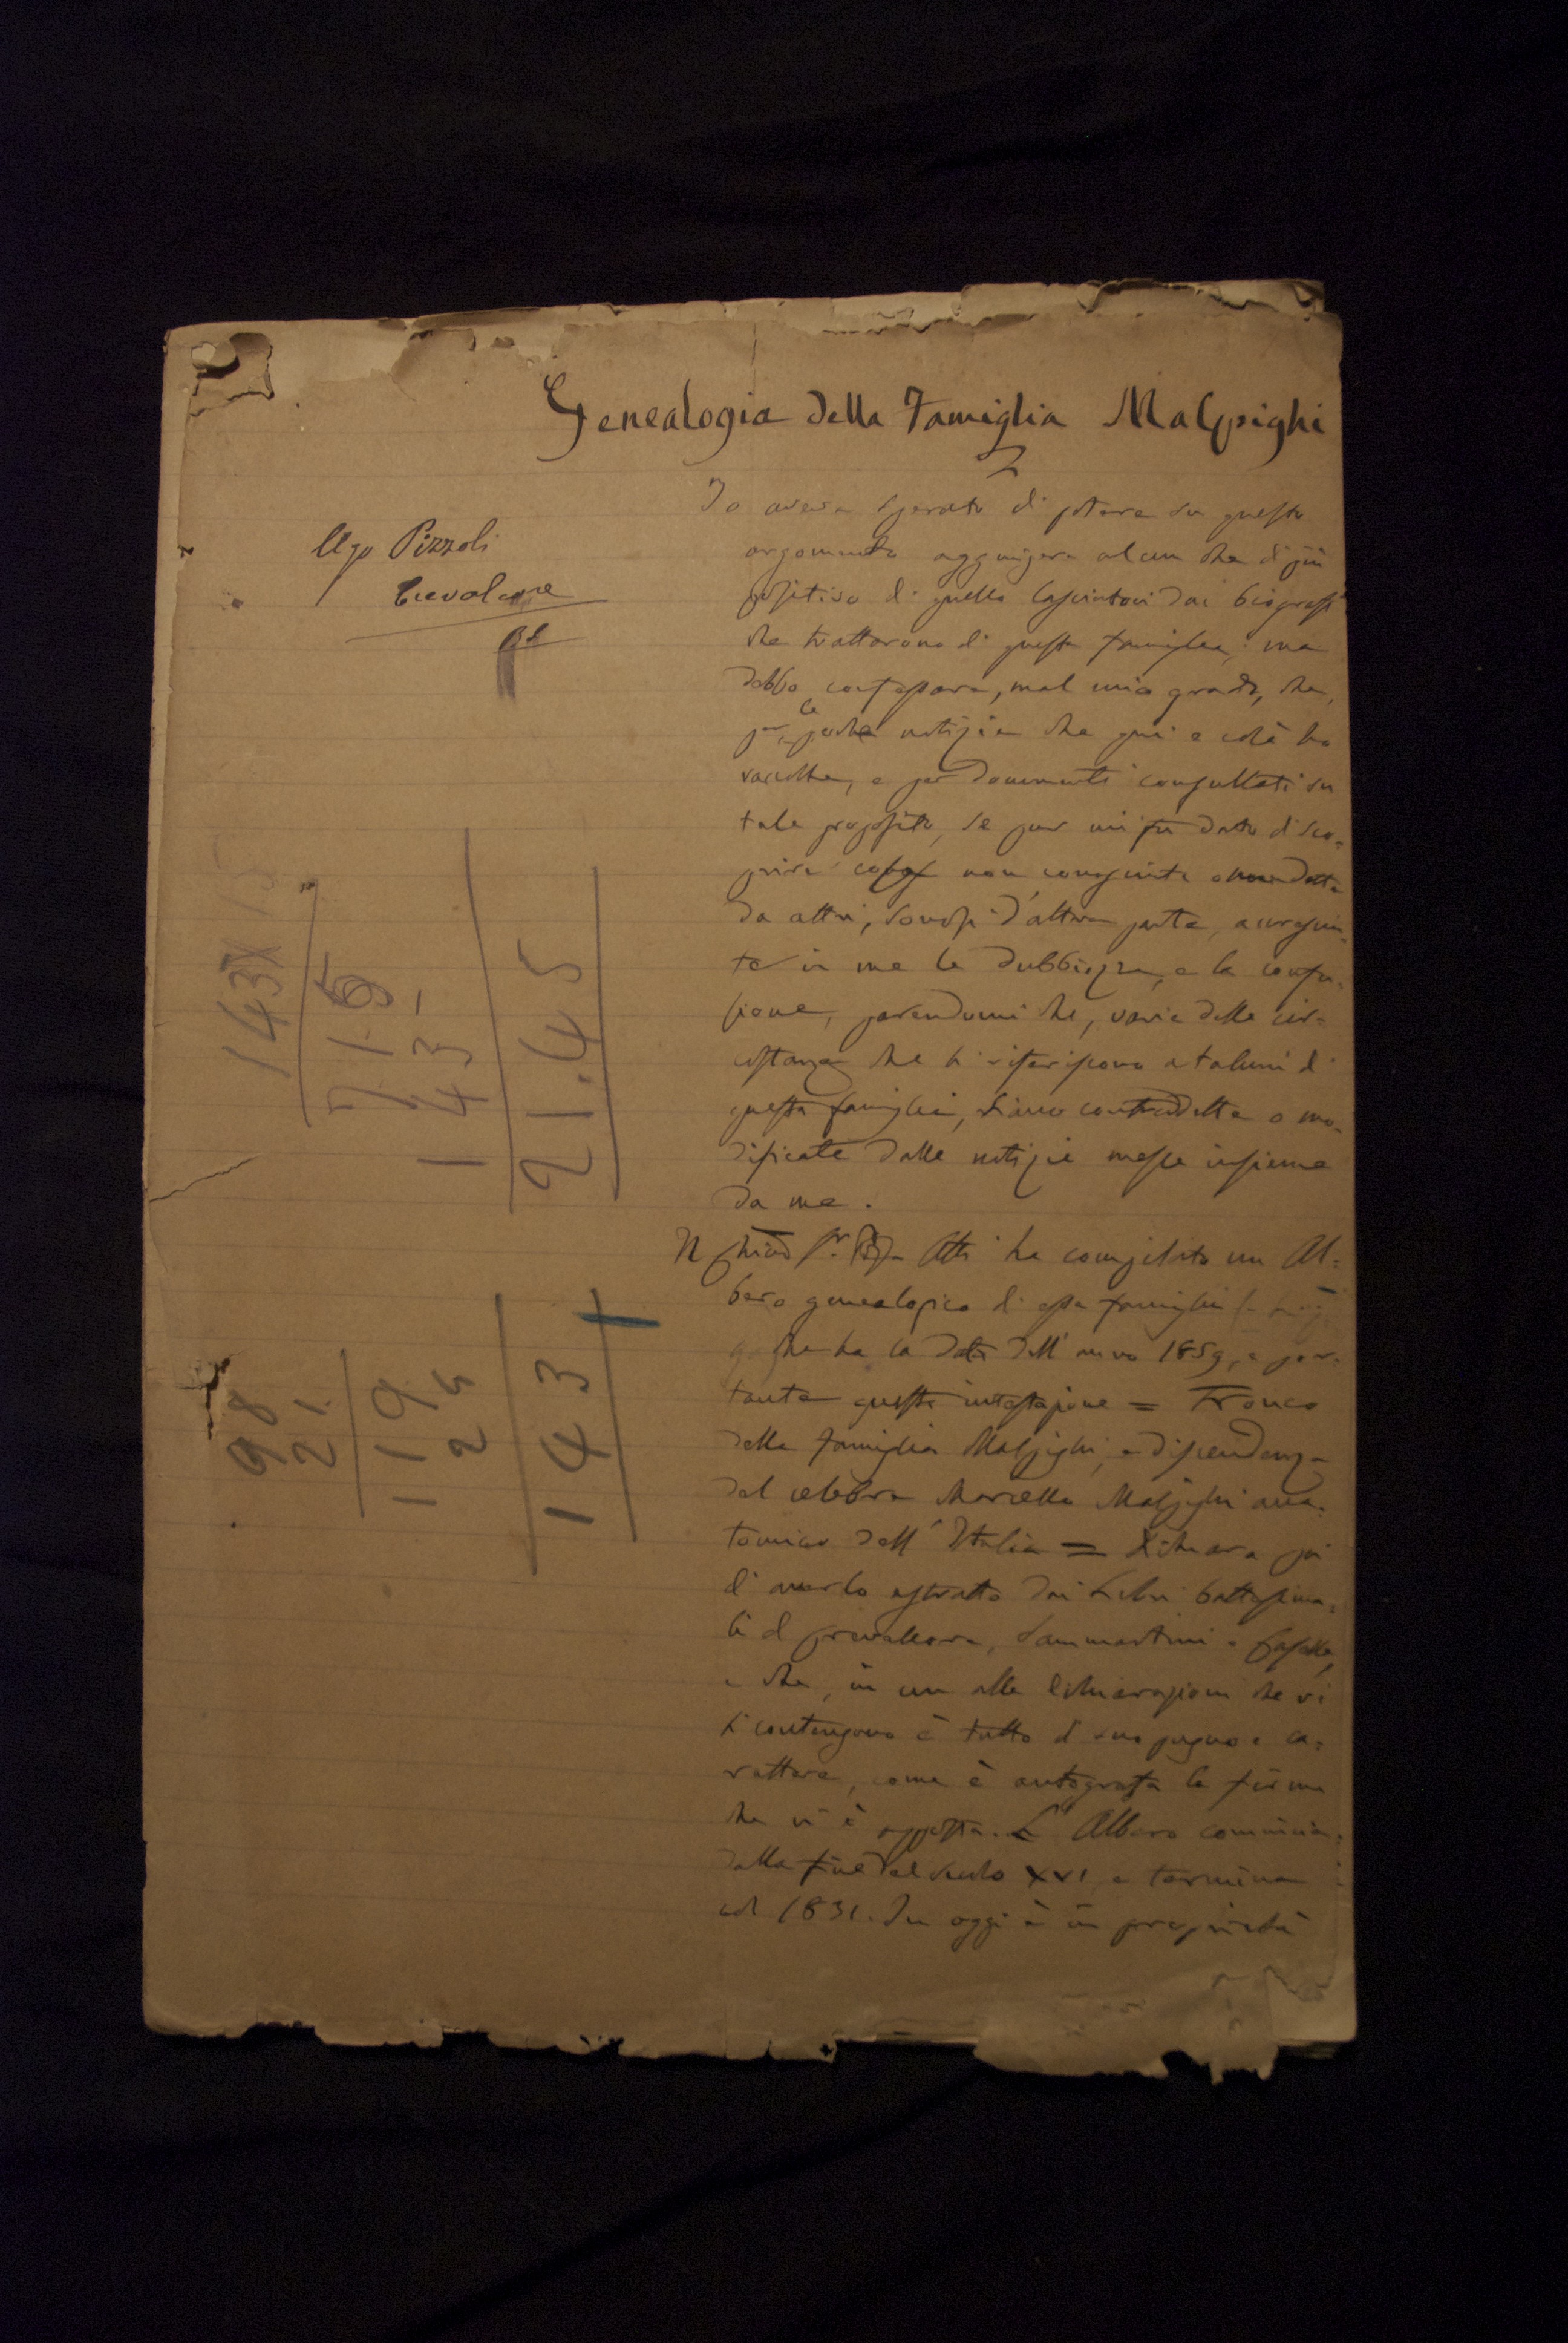 Genealogia della Famiglia Malpighi
Ugo Pizzoli
Crevalcore
Io aveva sperato di potere su questo
argomento aggiungere alcun che di più
positivo di quello lasciatoci dai biografi
che trattarono di questa famiglia; ma
debbo confessare, mal mio grado, che,
per le poche notizie che qui e colà ho
raccolte, e per documenti consultati su
tale proposito, se pur mi fu dato di sco=
prire cose non conosciute o non dette
da altri, sonosi d'altra parte, accresciu=
te in me le dubbiezze, e la confu=
sione, parendomi che, varie delle cir=
costanze che si riferiscono a taluni di
questa famiglia, siano contraddette o mo=
dificate dalle notizie messe insieme
da me.
Il Atti ha compilato un Al=
bero genealogico di essa famiglia
che ha la data dell'anno 1859, e por=
tante questa intestazione = Tronco
della famiglia Malpighi, e discendenza
del celebre Marcello Malpighi ana=
tomico dell'Italia = Dichiara poi
di averlo estratto dai Libri battesima=
li di Crevalcore, Sammartini e
e che, in un alle dichiarazioni che vi
si contengono è tutto di suo pugno e ca=
rattere, come è autografa la firma
che vi è apposta. L'Albero comincia
dalla fine del secolo XVI e termina
col 1831. In oggi è in proprietà
143 X 15
715
143-
21.45
98
21
119
24
143